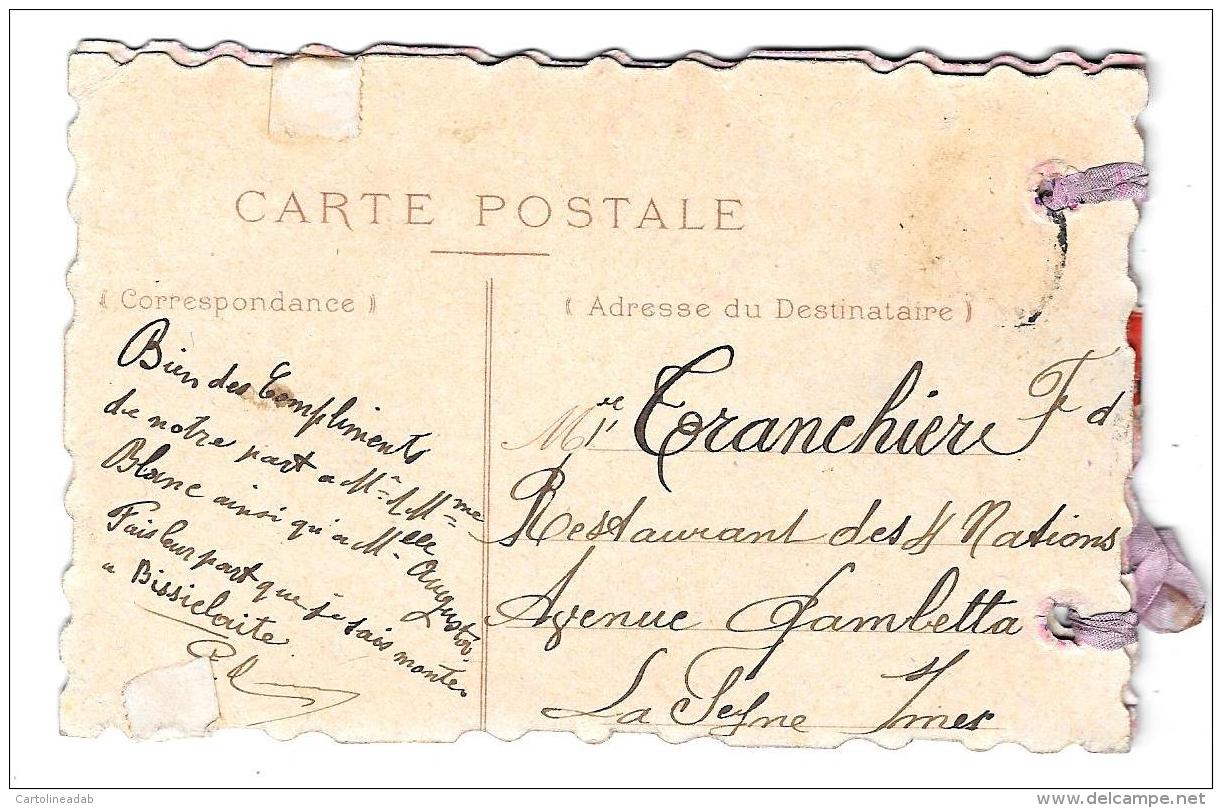 CARTE POSTALE
( Correspondance )
( Adresse du Destinataire )
Bien des Compliments
de notre part a Mr & Mme
Blanc ainsi qu'a Melle Augusta.
Fais leur part que je sais monter
a Bissiclaite.
Mr Tranchier Fd
Restaurant des 4 Nations
Avenue Gambetta
La Seyne s/mer
Cartolineadab
www.delcampe.net